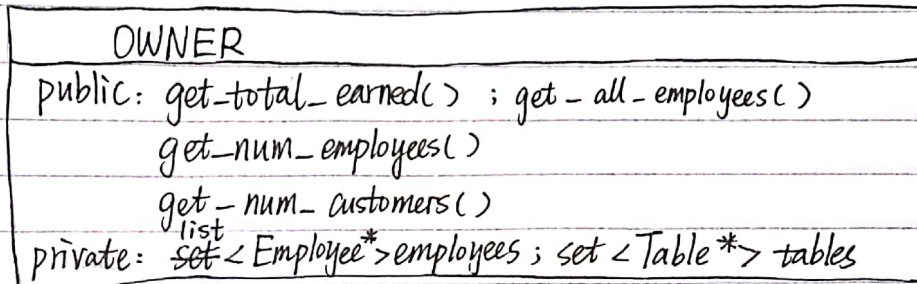 OWNER
public: get_total_earned() ; get_all_employees()
get_num_employees()
get_num_customers()
list
private: set<Employee*>employees ; set<Table*> tables